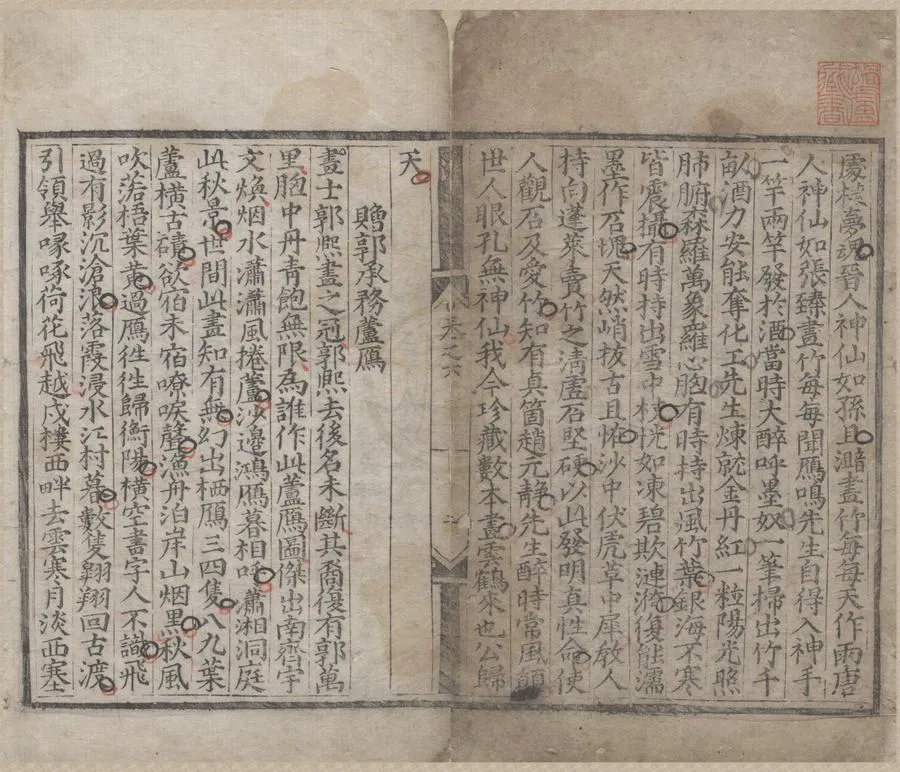 慶楼夢魂晉人神仙如孫且濳畫竹每每天作雨唐
人神仙如張臻畫竹每每聞鴈鳴先生自得入神手
一竿兩竿發於酒當時大醉呼墨奴一筆掃出竹千
畝酒力安能奪化工先生煉就金丹紅一粒陽光照
肺腑森羅萬象羅心胞有時持出風竹葉銀海不寒
皆震攝有時持出雪中枝恍如凍碧欺漣漪復能濡
墨作石塊天然峭拔古且怪沙中伏虎草中犀教人
持向蓬萊賣竹之清虛石堅硬以此發明真性命使
人觀石及愛竹知有真箇趙元靜先生醉時常風顛
世人眼孔無神仙我今珍藏數本畫雲鶴來也公歸
卷之六
天
贈郭承務蘆鴈
畫士郭熙畫之冠郭熙去後名未斷其裔復有郭萬
里胞中丹青飽無限為誰作此蘆鴈圖傑出南齊宇
文煥烟水瀟瀟風捲蘆沙邊鴻鴈暮相呼瀟湘洞庭
此秋景世間此畫知有無幻出栖鴈三四隻八九葉
蘆橫古磧欲宿未宿嘹唳聲漁舟泊岸山烟黑秋風
吹落梧葉黃過鴈徃徃歸衡陽橫空書字人不識飛
過有影沉滄浪落霞浸水江村暮數隻翺翔回古渡
引領舉喙啄荷花飛越戍樓西畔去雲寒月淡西塞